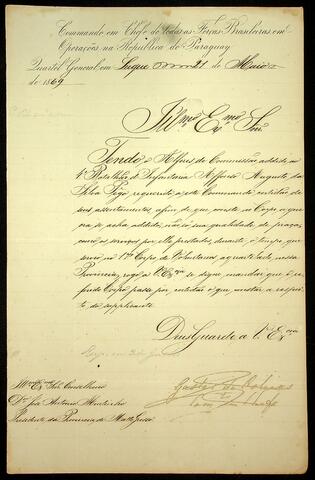 Commando em Chefe de todas as Forças Brasileiras em
Operações na Republica do Paraguay
Quartel General em Luque 21 de Maio
de 1869
Illmo Exmo Snr
Tendo o Alferes de Commissão addido ao
4º Batalhão d'Infantaria Affonso Augusto da
Silva requerido a este Commando certidão de
seus assentamentos, afim de que conste no Corpo a que
se acha addido, não só sua qualidade de praça,
como os serviços por elle prestados durante o tempo que
servio no 1º Corpo de Voluntarios aquartelado nessa
Provincia, rogo a V Exa se digne mandar que o re-
ferido Corpo passe por certidão o que constar a respei-
to do supplicante.
Deus Guarde a V. Exa
Exmo Snr Conselheiro
Dr José Antonio Murtinho
Presidente da Provincia de Matto Grosso
Gastão de Orléans